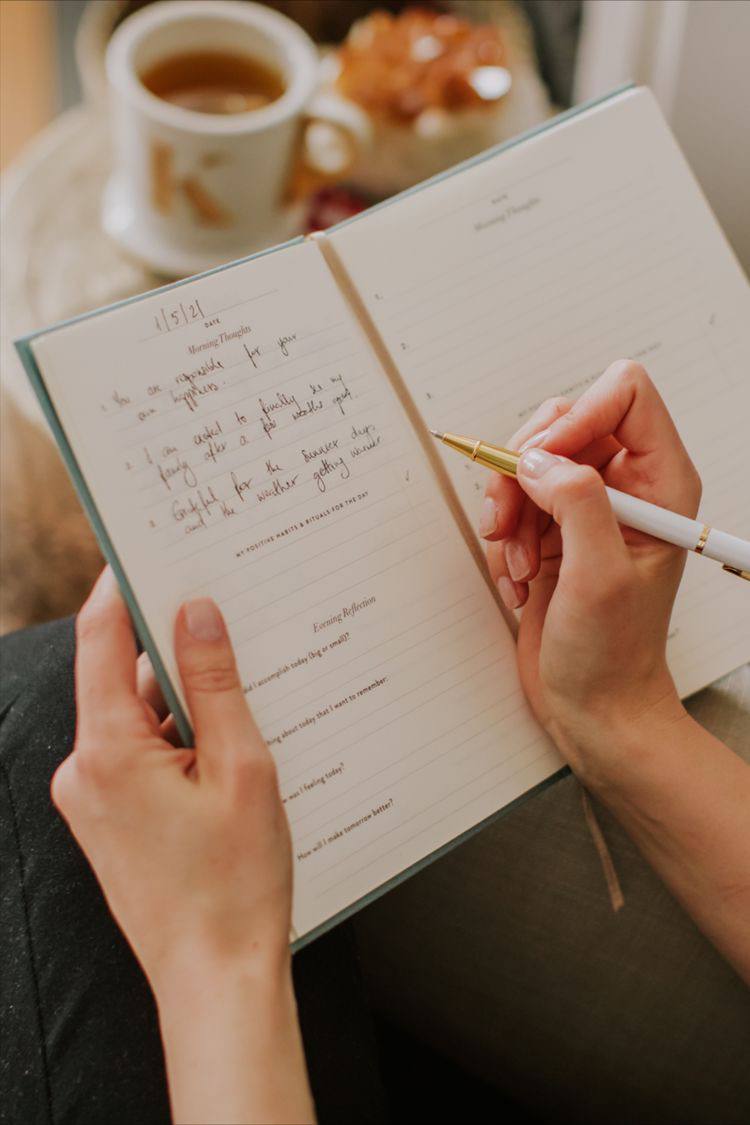 K
1/5/21
DATE
Morning Thoughts
1. You are responsible for your
own happiness.
2. I am excited to finally see my
family after a few months apart.
3. Grateful for the summer days
and the weather getting warmer
MY POSITIVE HABITS & RITUALS FOR THE DAY
Evening Reflection
did I accomplish today (big or small)?
thing about today that I want to remember:
was I feeling today?
How will I make tomorrow better?
DATE
Morning Thoughts
1.
2.
3.